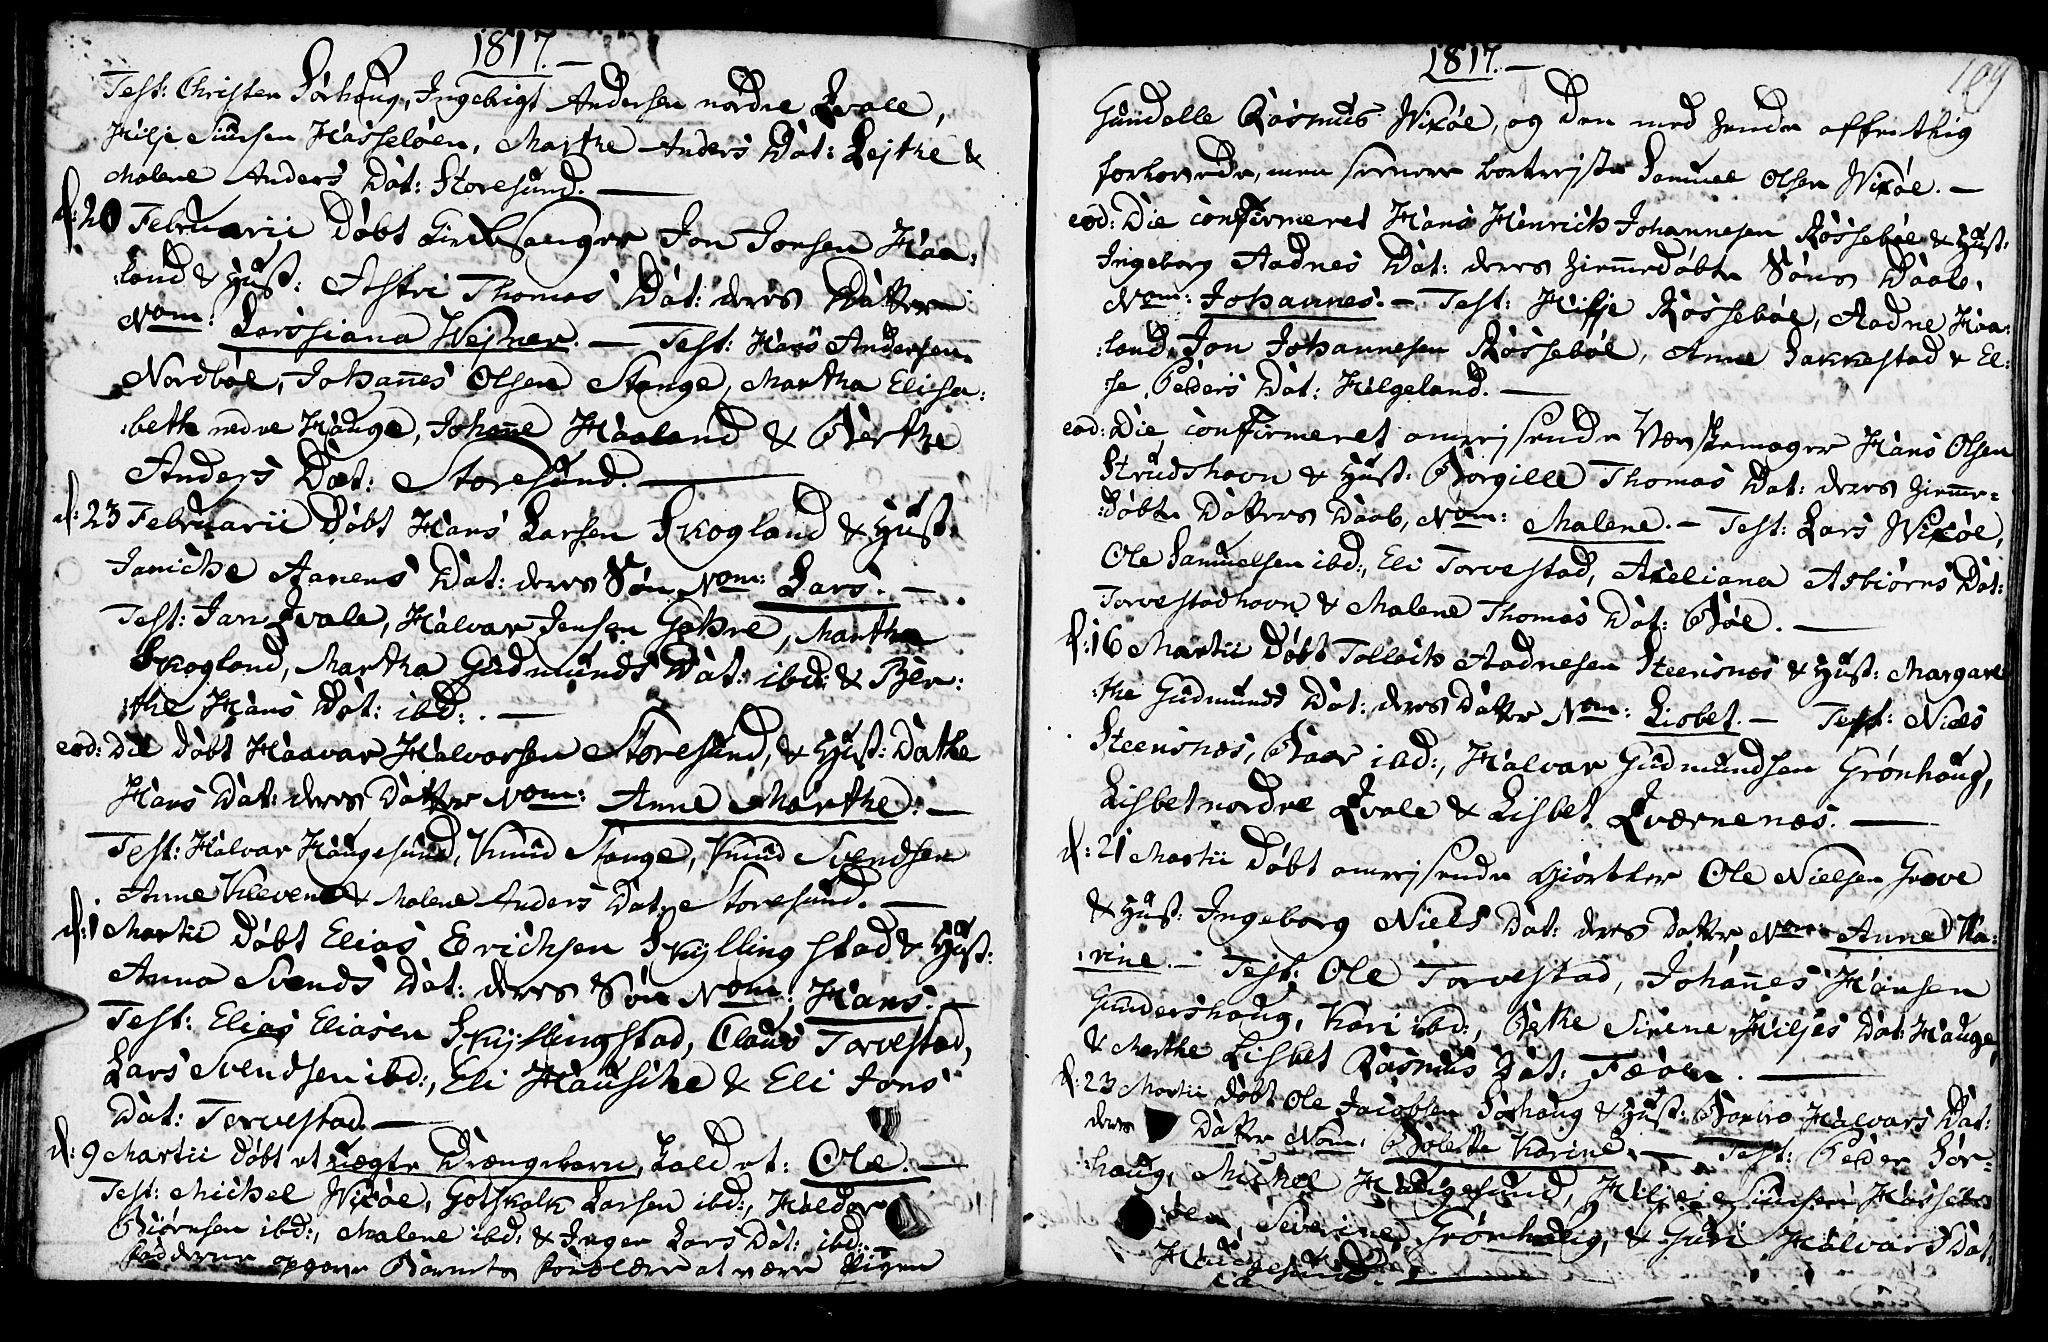 1817. —
Test: Christen Sørhaug, Ingebrigt Andersen nordre Qvale,
Hilje Siursen Hasseløen, Marthe Anders Dat: Lejthe &
Malene Anders Dat: Storesund. —
d: 20 Februarii døbt Kirkesanger Jon Jonsen Haa:
:land & Hust: Astri Thomas Dat: deres Datter
Nom: Larssiana Wejner. — Test: Hans Andersen
Nordbøe, Johannes Olsen Stange, Martha Elisa:
:beth nedre Hauge, Johanne Haaland & Berthe
Anders Dat: Storesund. —
d: 23 Februarii døbt Hans Larsen Skogland & Hust:
Janiche Aanens Dat: deres Søn Nom: Lars. —
Test: Jan Qvale, Halvar Jensen Gahre, Martha
Skogland, Martha Gudmunds Dat: ibd: & Ber:
:the Hans Dat: ibd: . —
eod: Die døbt Haavar Halvorsen Storesund, & Hust: Dathe
Hans Dat: deres Datter Nom: Anne Marthe. —
Test: Halvar Haugesund, Knud Stange, Knud Svendsen
Anne Kleven & Malene Anders Dat: Storesund. —
d: 1 Martii døbt Elias Erichsen Skyllingstad & Hust:
Anna Svends Dat: deres Søn Nom: Hans. —
Test: Elias Eliasen Skyllingstad, Claus Torvestad,
Lars Svendsen ibd:, Eli Hausche & Eli Jons
Dat: Torvestad. —
d: 9 Martii døbt et uægte Drængebarn, kaldet: Ole. —
Test: Michel Wixøe, Gotskalk Larsen ibd:, Haldor
Biørnsen ibd:, Malene ibd: & Inger Lars Dat: ibd:
Fadderne opgave Barnets Forældre at være Pigen
1817. —
109
Gundelle Rasmus Wixøe, og den med hende offentlig
forlovede, men senere bortrejste Samuel Olsen Wixøe. —
eod: Die confirmeret Hans Henrich Johannesen Røssebøe & Hust:
Ingeborg Aadnes Dat: deres hjemmedøbte Søns Daab,
Nom: Johannes. — Test: Hilje Røssebøe, Aadne Haa:
:land, Jon Johannesen Røssebøe, Anne Sakkestad & El:
:se Peders Dat: Helgeland. —
eod: Die, confirmeret omrejsende Hans Olsen
Strudshavn & Hust: Borgille Thomas Dat: deres hjemme:
:døbte Datters Daab, Nom: Malene. — Test: Lars Wixøe,
Ole Samuelsen ibd:, Eli Torvestad, Axeliana Asbiørns Dat:
Torvestadhavn & Malene Thomas Dat: Bøe. —
d: 16 Martii døbt Tolleich Aadnesen Steensnes & Hust: Margare
:the Gudmunds Dat: deres Datter Nom: Lisbet. — Test: Niels
Steensnes, Baar ibd:, Halvar Gudmundsen Grønhaug,
Lisbet nordre Qvale & Lisbet Qværnenæs. —
d: 21 Martii døbt omrejsende Giørtler Ole Nielsen Grave
& Hust: Ingeborg Niels Dat: deres Datter Nom: Anne Ka:
:rine. — Test: Ole Torvestad, Johannes Hansen
Gundershaug, Kari ibd:, Bethe Sirene Hiljes Dat: Hauge,
& Marthe Lisbet Rasmus Dat: Feøen. —
d: 23 Martii døbt Ole Jacobsen Sørhaug & Hust: Barbro Halvars Dat:
deres Datter Nom: Bolette Karine. — Test: Peder Sør:
:haug, Michel Haugesund, Hilje Siursen Hassel
:øen, Siverine Grønhaug, & Guri Halvars Dat:
Haugesund. —